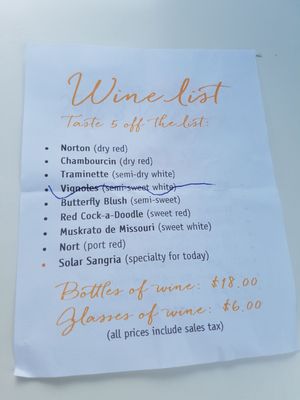 Wine list
Taste 5 off the list:
• Norton (dry red)
• Chambourcin (dry red)
• Traminette (semi-dry white)
• Vignoles (semi-sweet white)
• Butterfly Blush (semi-sweet)
• Red Cock-a-Doodle (sweet red)
• Muskrato de Missouri (sweet white)
• Nort (port red)
• Solar Sangria (specialty for today)
Bottles of wine: $18.00
Glasses of wine: $6.00
(all prices include sales tax)